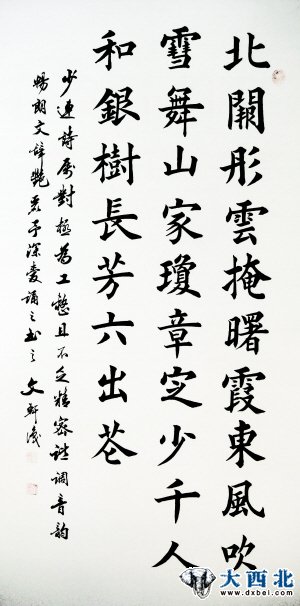 北闕彤雲掩曙霞東風吹
雪舞山家瓊章定少千人
和銀樹長芳六出花
少連詩属對極為工整且不乏精密諧調音韵
暢朗文辭艷麗予深愛誦之書之文軒識
大西北
www.dxbei.com